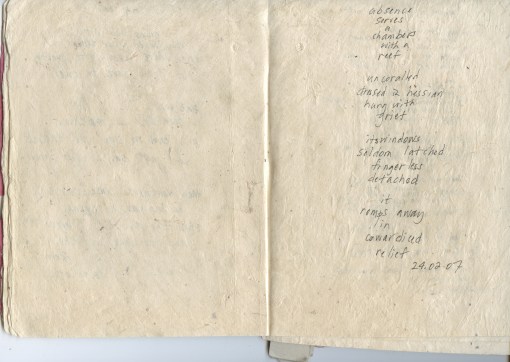 absence
serves
a
chambers
with a
reef
uncoralled
chased in hessian
hung with
grief
its windows
seldom latched
fingerless
detached
it
romps away
in
cowardiced
relief
24.02.07